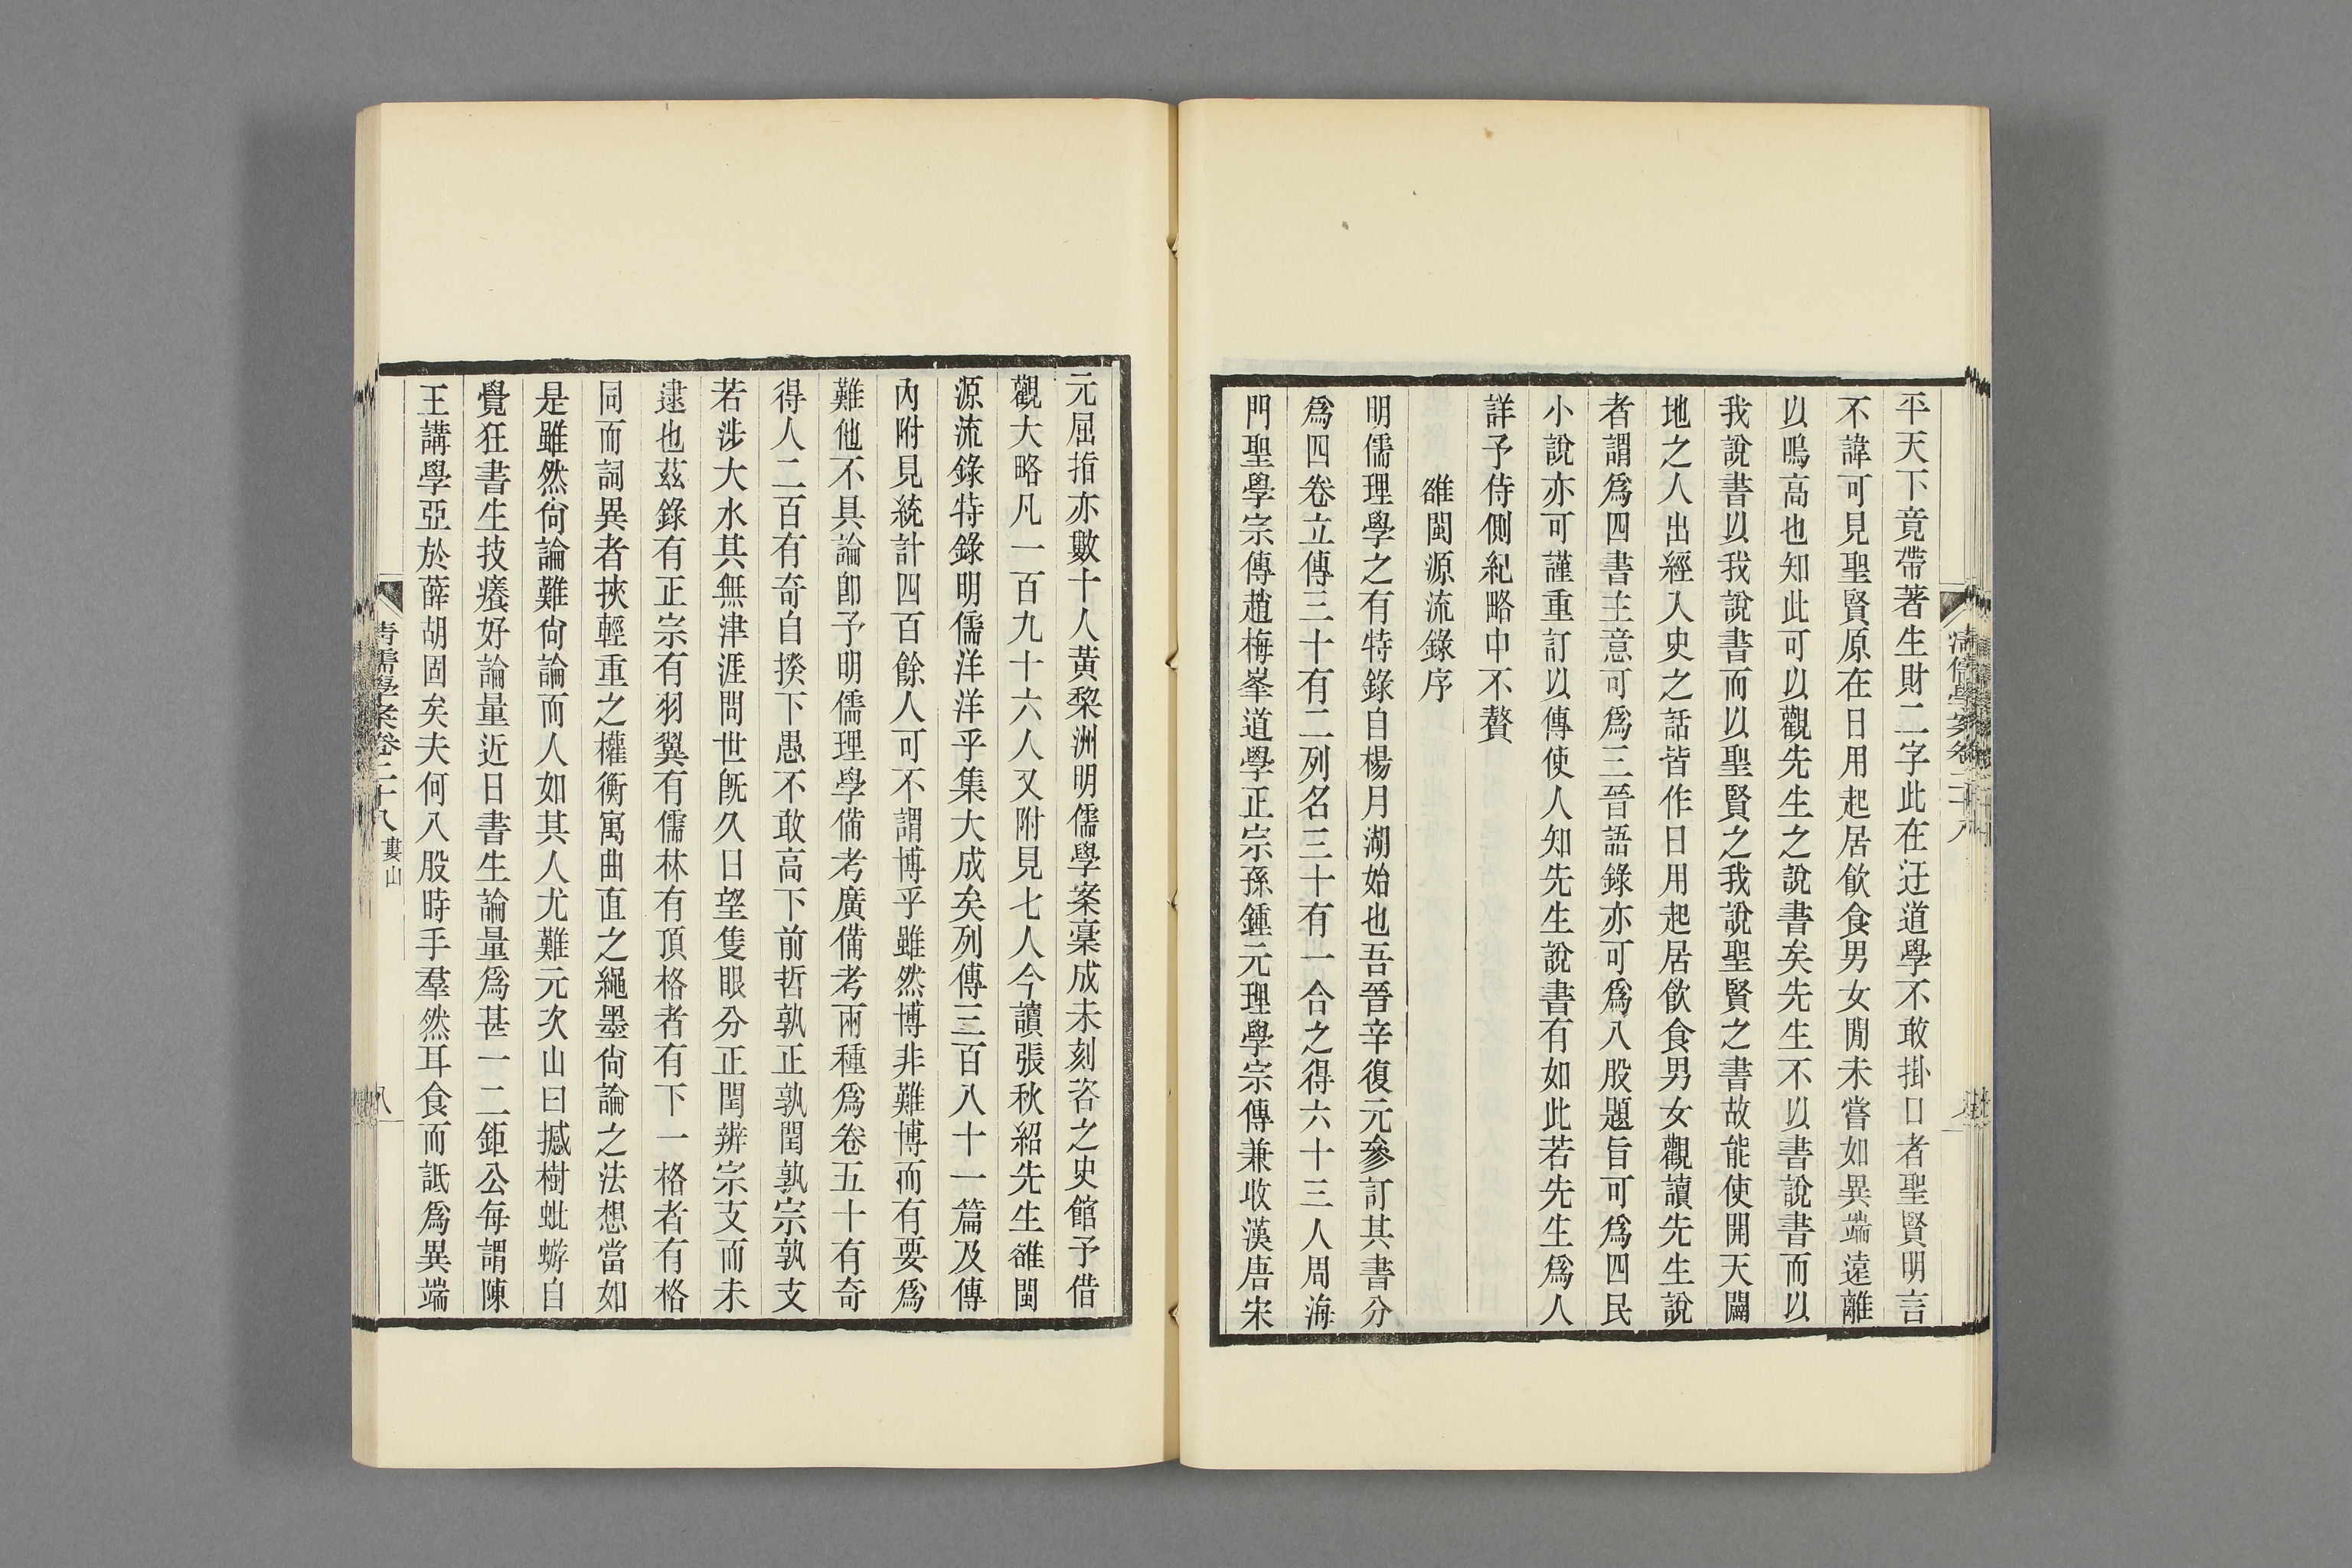 平天下竟帶著生財二字此在迂道學不敢掛口者聖賢明言
不諱可見聖賢原在日用起居飲食男女閒未嘗如異端遠離
以鳴高也知此可以觀先生之說書矣先生不以書說書而以
我說書以我說書而以聖賢之我說聖賢之書故能使開天闢
地之人出經入史之話皆作日用起居飲食男女觀讀先生說
者謂爲四書主意可爲三晉語錄亦可爲八股題旨可爲四民
小說亦可謹重訂以傳使人知先生說書有如此若先生爲人
詳予侍側紀略中不贅
雒閩源流錄序
明儒理學之有特錄自楊月湖始也吾晉辛復元參訂其書分
爲四卷立傳三十有二列名三十有一合之得六十三人周海
門聖學宗傳趙梅峯道學正宗孫鍾元理學宗傳兼收漢唐宋
元屈指亦數十人黃棃洲明儒學案稾成未刻咨之史館予借
觀大略凡一百九十六人又附見七人今讀張秋紹先生雒閩
源流錄特錄明儒洋洋乎集大成矣列傳三百八十一篇及傳
內附見統計四百餘人可不謂博乎雖然博非難博而有要爲
難他不具論卽予明儒理學備考廣備考兩種爲卷五十有奇
得人二百有奇自揆下愚不敢高下前哲孰正孰閏孰宗孰支
若涉大水其無津涯問世旣久日望隻眼分正閏辨宗支而未
逮也茲錄有正宗有羽翼有儒林有頂格者有下一格者有格
同而詞異者挾輕重之權衡寓曲直之繩墨尙論之法想當如
是雖然尙論難尙論而人如其人尤難元次山曰撼樹蚍蝣自
覺狂書生技癢好論量近日書生論量爲甚一二鉅公每謂陳
王講學亞於薛胡固矣夫何八股時手羣然耳食而詆爲異端
清儒學案卷二十八 婁山
八